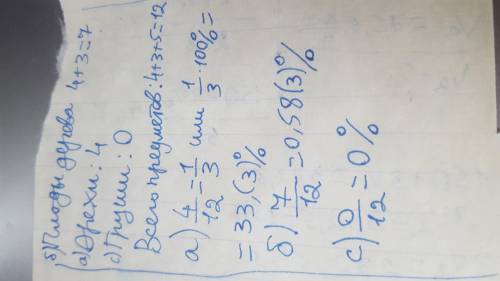 б) Плоды дерева 4+3=7
а) Орехи: 4
с) Груши: 0
Всего предметов: 4+3+5=12
а) 4/12 = 1/3 или 1/3 · 100% =
= 33,(3)%
б) 7/12 = 0,58(3)%
с) 0/12 = 0%